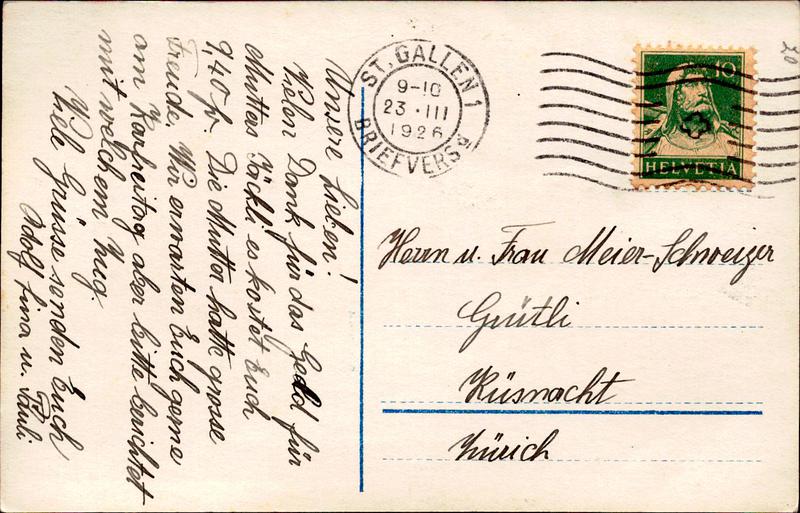 Unsere Lieben!
Vielen Dank für das Geld für
Mutters Jäckli es kostet Euch
9,40 fr. Die Mutter hatte grosse
Freude. Wir erwarten Euch gerne
am Karfreitag aber bitte berichtet
mit welchem Zug.
Viele Grüsse senden Euch
Adolf Lina u. Pauli.
ST. GALLEN 1
9-10
23·III
1926
BRIEFVERSd
10
HELVETIA
20
Herrn u. Frau Meier-Schweizer
Grütli
Küsnacht
Zürich